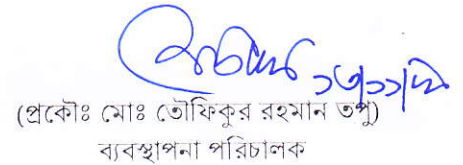 (প্রকৌঃ মোঃ তৌফিকুর রহমান তপু)
ব্যবস্থাপনা পরিচালক